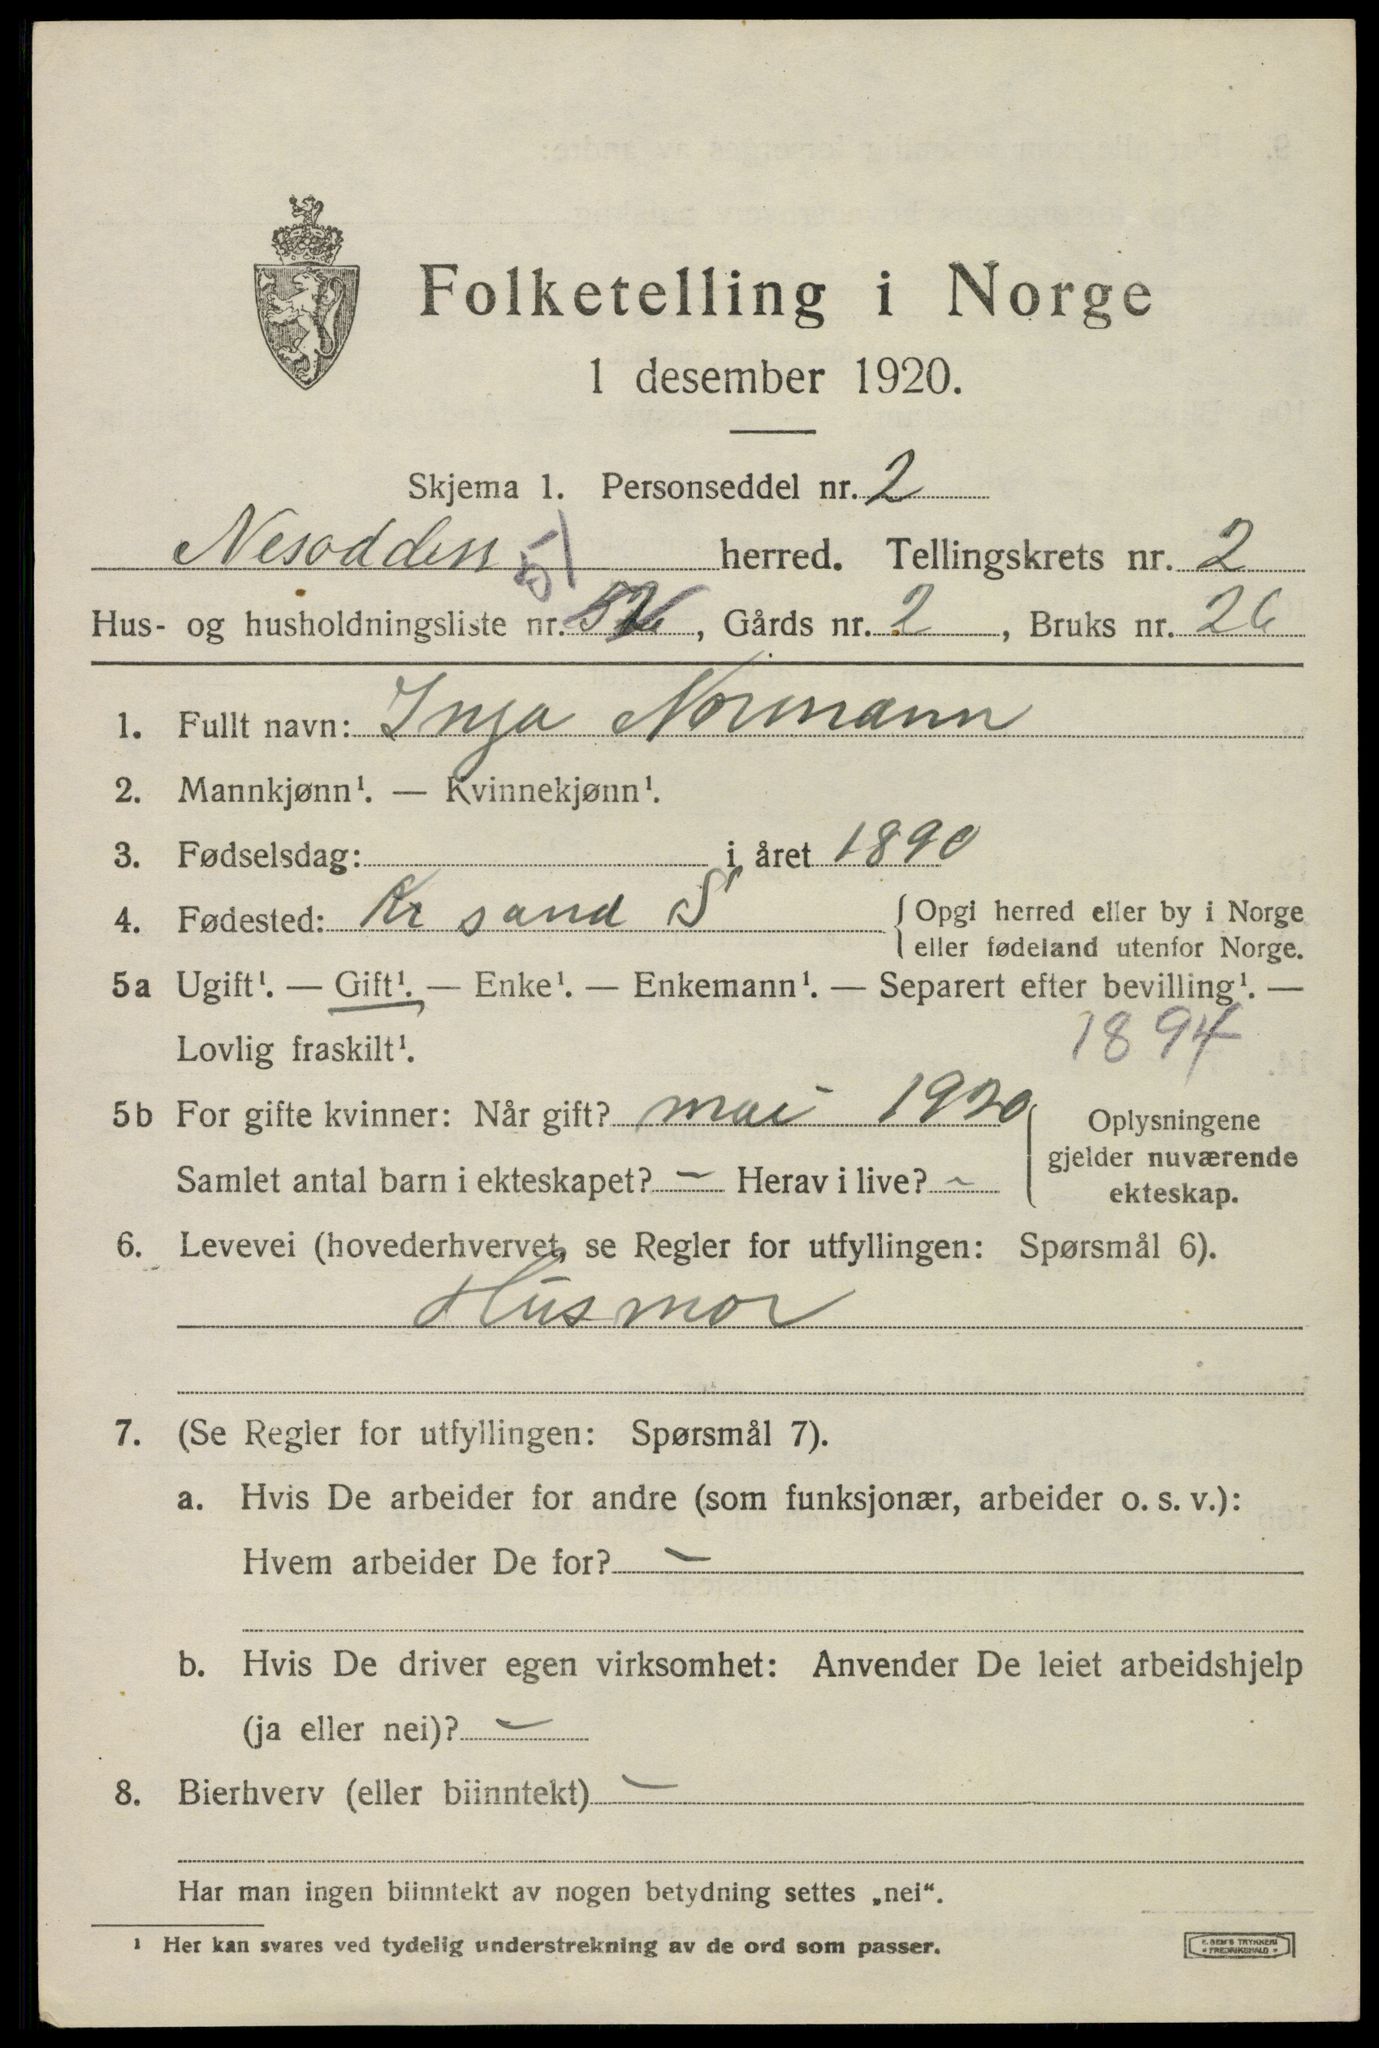 Folketelling i Norge
1 desember 1920.
Skjema 1. Personseddel nr. 2
Nesodden herred. Tellingskrets nr. 2
51
Hus- og husholdningsliste nr. 52, Gårds nr. 2, Bruks nr. 26
1. Fullt navn: Inga Normann
2. Mannkjønn¹. — Kvinnekjønn¹.
3. Fødselsdag: i året 1890
4. Fødested: Kr sand S { Opgi herred eller by i Norge
eller fødeland utenfor Norge.
5a Ugift¹. — Gift¹. — Enke¹. — Enkemann¹. — Separert efter bevilling¹. —
Lovlig fraskilt¹.
1894
5b For gifte kvinner: Når gift? mai 1920
Samlet antal barn i ekteskapet? — Herav i live? -
Oplysningene
gjelder nuværende
ekteskap.
6. Levevei (hovederhvervet, se Regler for utfyllingen: Spørsmål 6).
Husmor
7. (Se Regler for utfyllingen: Spørsmål 7).
a. Hvis De arbeider for andre (som funksjonær, arbeider o. s. v.):
Hvem arbeider De for? —
b. Hvis De driver egen virksomhet: Anvender De leiet arbeidshjelp
(ja eller nei)? —
8. Bierhverv (eller biinntekt) —
Har man ingen biinntekt av nogen betydning settes „nei“.
¹ Her kan svares ved tydelig understrekning av de ord som passer.
E. SEM'S TRYKKERI
• FREDRIKSHALD •